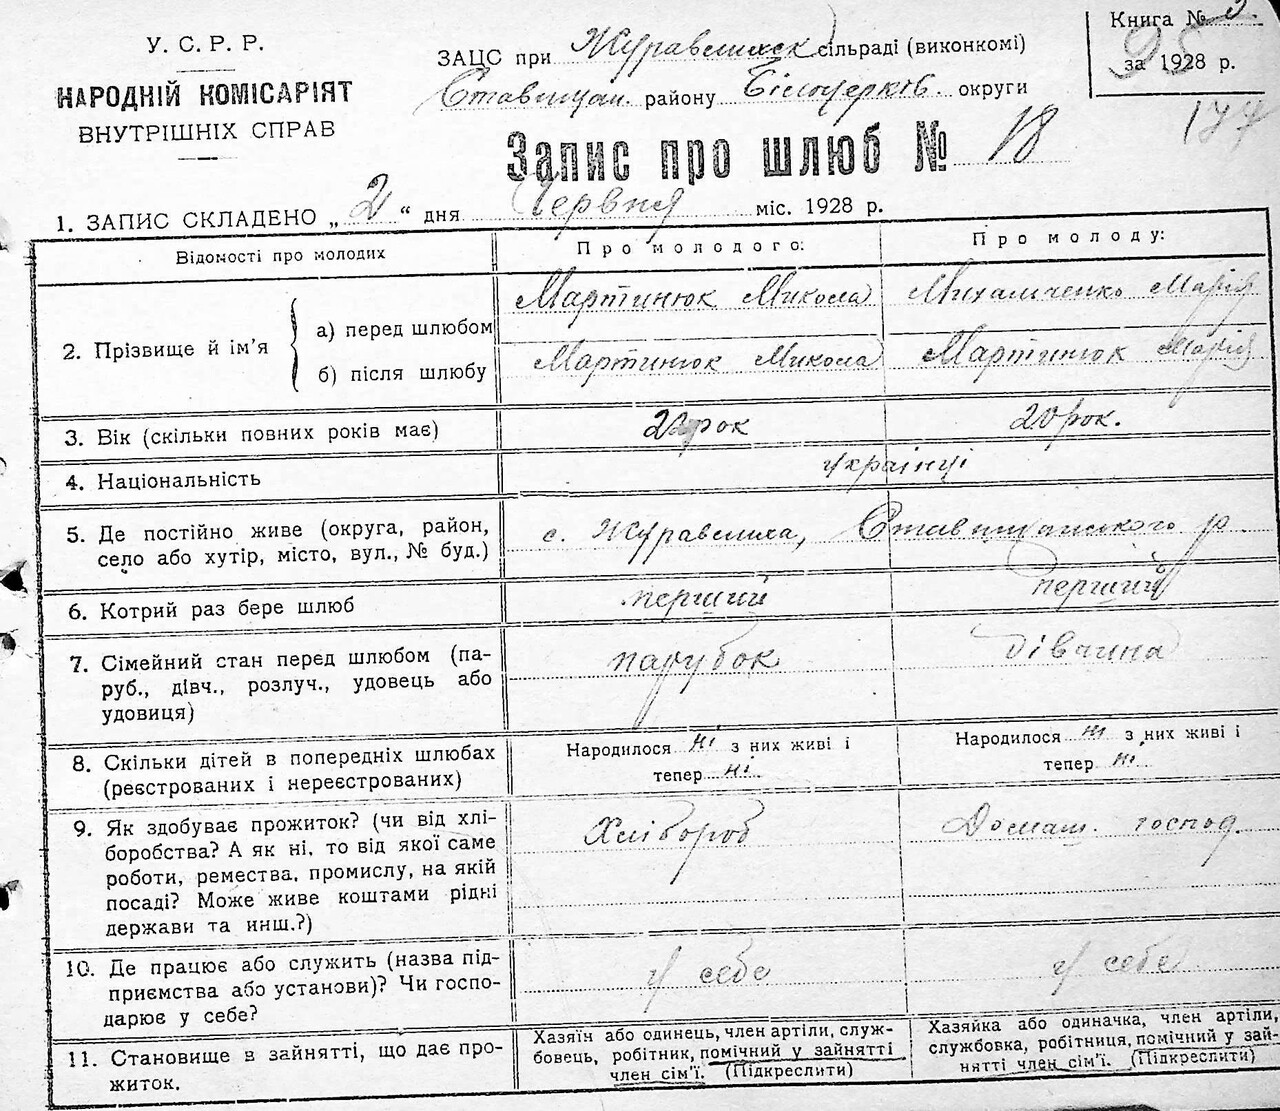 У. С. Р. Р.
НАРОДНІЙ КОМІСАРІЯТ
ВНУТРІШНІХ СПРАВ
ЗАЦС при Журавлихск сільраді (виконкомі)
Ставищан. району Білоцерків. округи
Книга № 3.
за 1928 р.
95
177
Запис про шлюб № 18
1. ЗАПИС СКЛАДЕНО „ 2 “ дня Червня міс. 1928 р.
Відомості про молодих
Про молодого:
Про молоду:
2. Прізвище й ім’я
а) перед шлюбом
Мартинюк Микола
Михальченко Марія
б) після шлюбу
Мартинюк Микола
Мартинюк Марія
3. Вік (скільки повних років має)
22 рок
20 рок.
4. Національність
українці
5. Де постійно живе (округа, район,
село або хутір, місто, вул., № буд.)
с. Журавлиха, Ставищанського р
6. Котрий раз бере шлюб
перший
перший
7. Сімейний стан перед шлюбом (па-
руб., дівч., розлуч., удовець або
удовиця)
парубок
дівчина
8. Скільки дітей в попередніх шлюбах
(реєстрованих і нереєстрованих)
Народилося ні з них живі і
тепер ні
Народилося ні з них живі і
тепер ні
9. Як здобуває прожиток? (чи від хлі-
боробства? А як ні, то від якої саме
роботи, ремества, промислу, на якій
посаді? Може живе коштами рідні
держави та инш.?)
Хлібороб
Домаш. господ.
10. Де працює або служить (назва під-
приємства або установи)? Чи госпо-
дарює у себе?
у себе
у себе
11. Становище в зайнятті, що дає про-
житок.
Хазяїн або одинець, член артіли, служ-
бовець, робітник, помічний у зайнятті
член сім’ї. (Підкреслити)
Хазяйка або одиначка, член артіли,
службовка, робітниця, помічний у зай-
нятті член сім’ї. (Підкреслити)